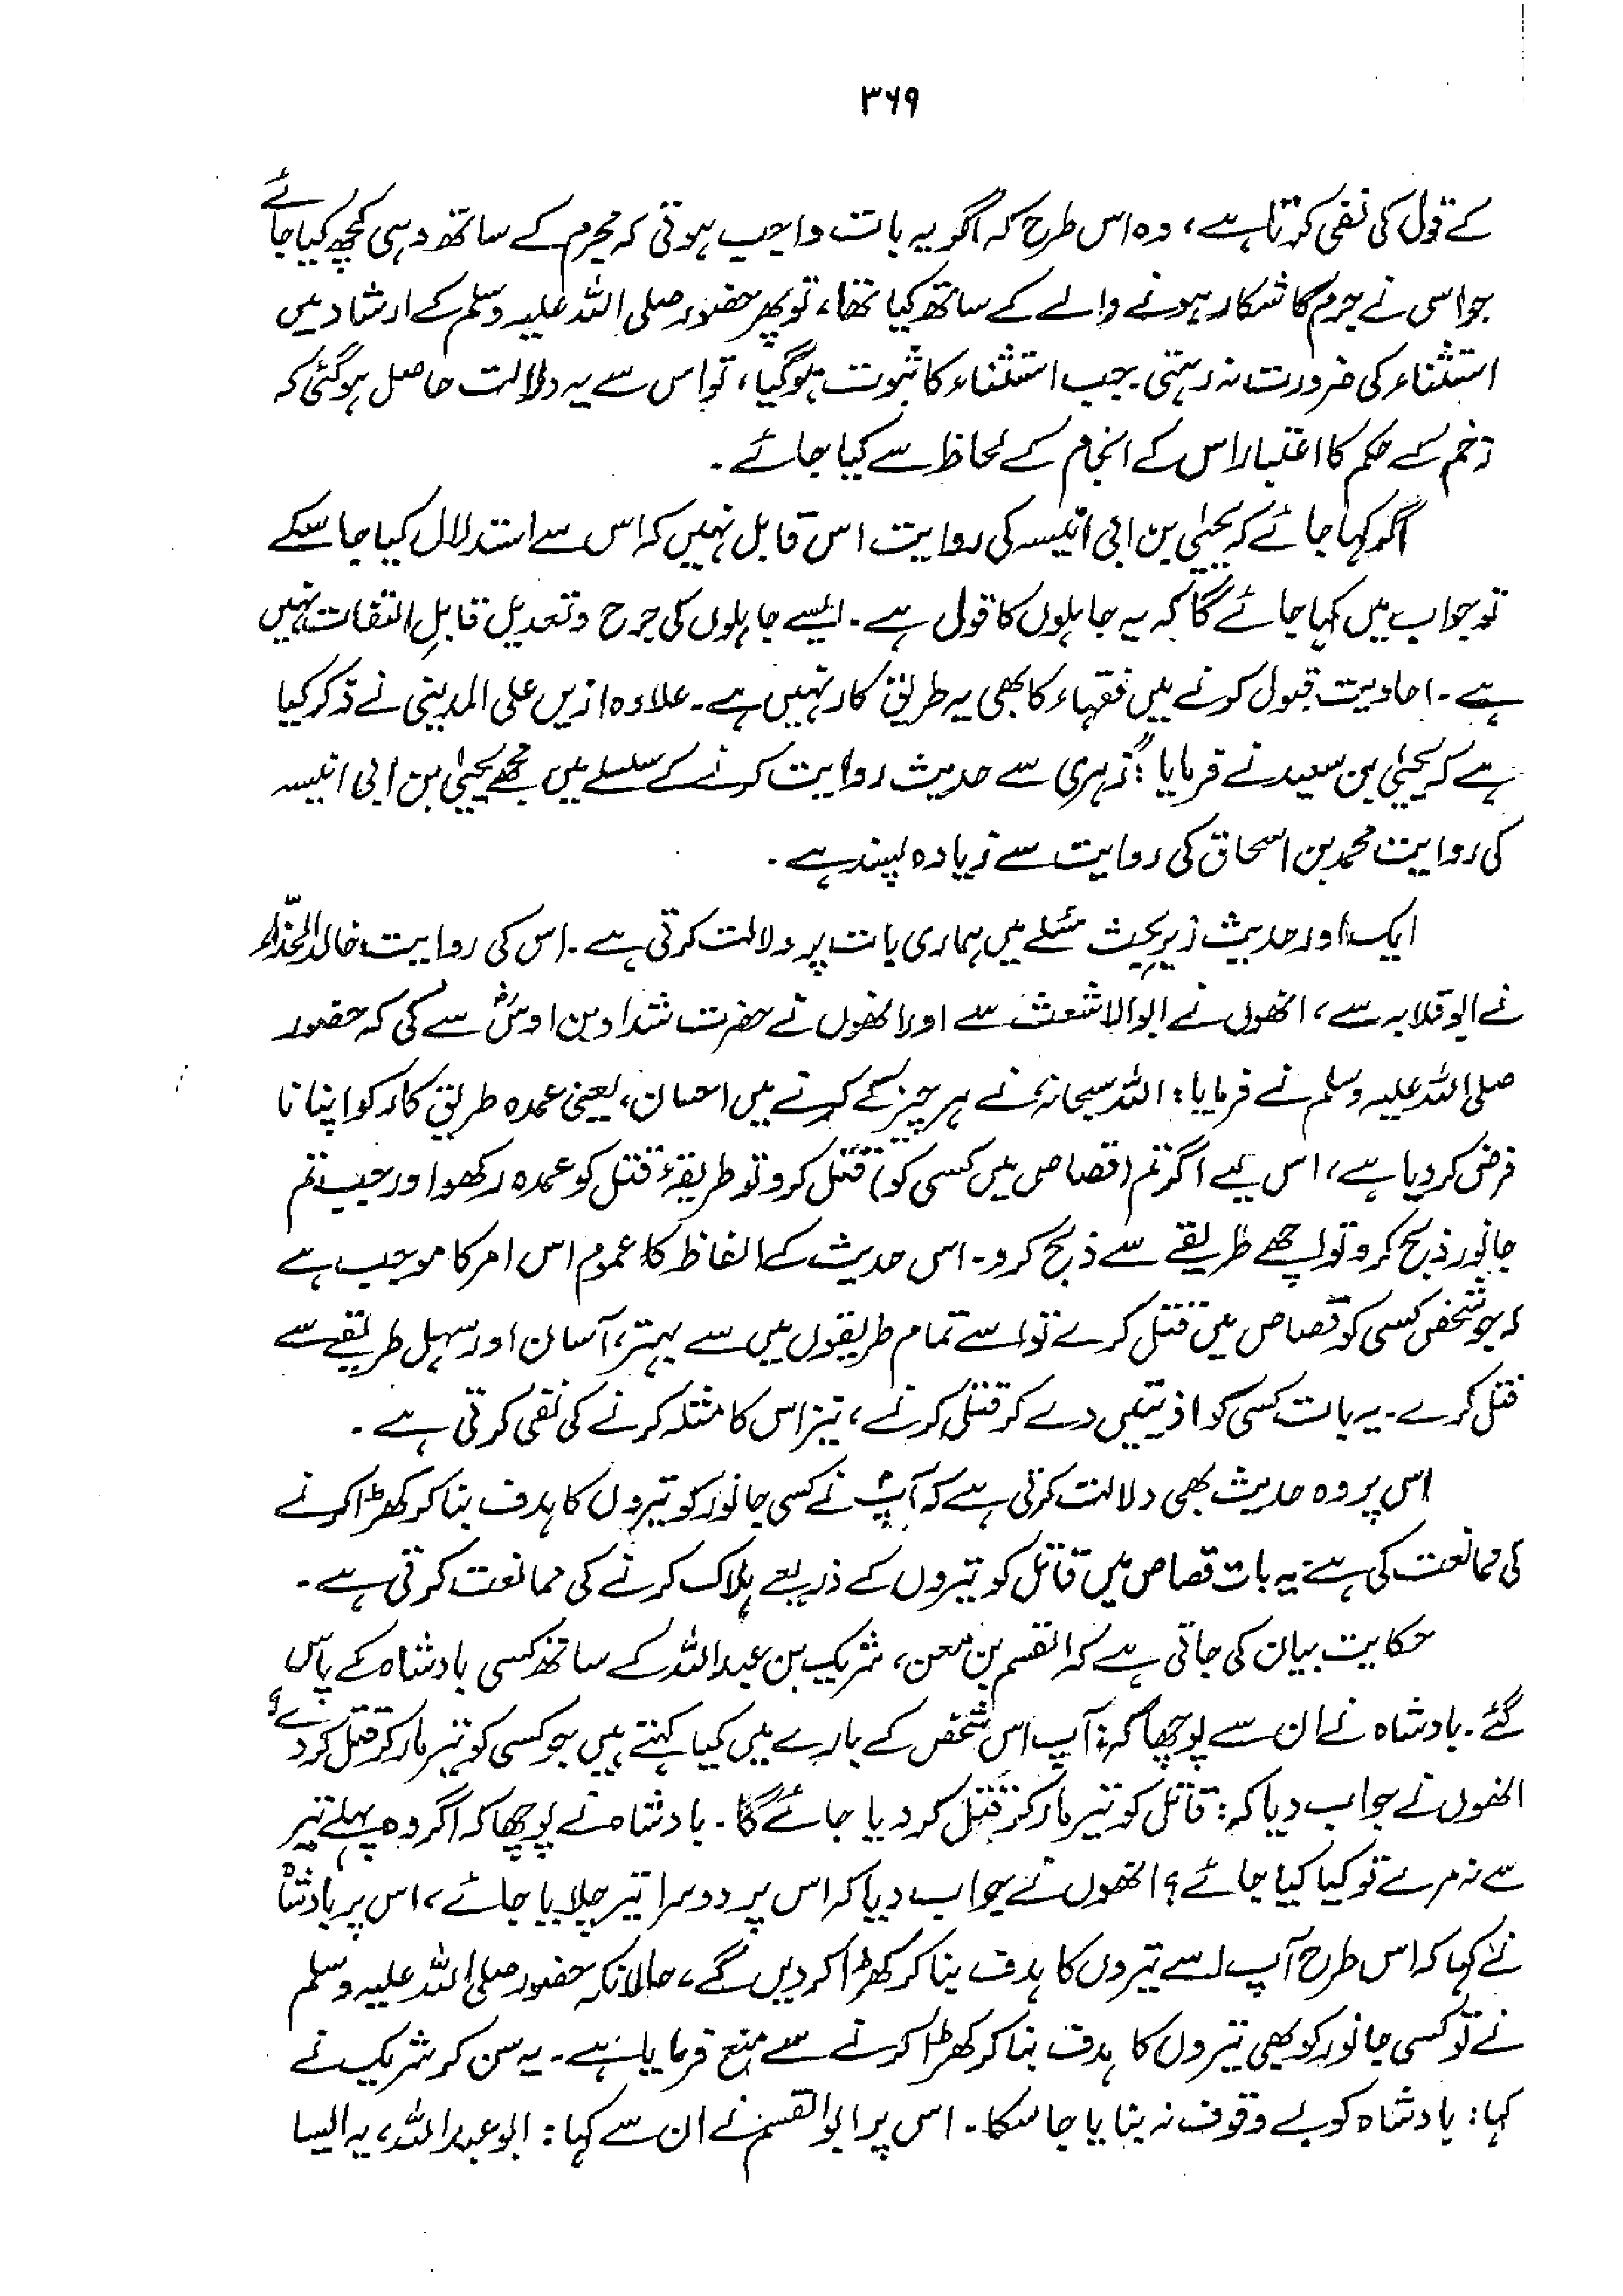 ۳۶۹
کے قول کی نفی کرتا ہے، وہ اس طرح کہ اگر یہ بات واجب ہوتی کہ مجرم کے ساتھ وہی کچھ کیا جائے
جو اس نے جرم کا شکار ہونے والے کے ساتھ کیا تھا، تو پھر حضور صلی اللہ علیہ وسلم کے ارشاد میں
استثناء کی ضرورت نہ رہتی۔ جب استثناء کا ثبوت ہو گیا، تو اس سے یہ دلالت حاصل ہو گئی کہ
زخم کے حکم کا اعتبار اس کے انجام کے لحاظ سے کیا جائے۔
اگر کہا جائے کہ یحییٰ بن ابی انیسہ کی روایت اس قابل نہیں کہ اس سے استدلال کیا جا سکے
تو جواب میں کہا جائے گا کہ یہ جاہلوں کا قول ہے۔ ایسے جاہلوں کی جرح و تعدیل قابلِ التفات نہیں
ہے۔ احادیث قبول کرنے میں فقہاء کا بھی یہ طریق کار نہیں ہے۔ علاوہ ازیں علی المدینی نے ذکر کیا
ہے کہ یحییٰ بن سعید نے فرمایا: "زہری سے حدیث روایت کرنے کے سلسلے میں مجھے یحییٰ بن ابی انیسہ
کی روایت محمد بن اسحاق کی روایت سے زیادہ پسند ہے۔
ایک اور حدیث زیر بحث مسئلے میں ہماری بات پر دلالت کرتی ہے۔ اس کی روایت خالد الحذّاء
نے ابو قلابہ سے، انھوں نے ابو الاشعث سے اور انھوں نے حضرت شداد بن اوسؓ سے کی کہ حضور
صلی اللہ علیہ وسلم نے فرمایا: اللہ سبحانہٗ نے ہر چیز کے کرنے میں احسان، یعنی عمدہ طریق کار کو اپنانا
فرض کر دیا ہے، اس لیے اگر تم (قصاص میں کسی کو) قتل کرو تو طریقۂ قتل کو عمدہ رکھو اور جب تم
جانور ذبح کرو تو اچھے طریقے سے ذبح کرو۔ اس حدیث کے الفاظ کا عموم اس امر کا موجب ہے
کہ جو شخص کسی کو قصاص میں قتل کرے تو اسے تمام طریقوں میں سے بہتر، آسان اور سہل طریقے سے
قتل کرے۔ یہ بات کسی کو اذیتیں دے کر قتل کرنے، نیز اس کا مثلہ کرنے کی نفی کرتی ہے۔
اس پر وہ حدیث بھی دلالت کرتی ہے کہ آپؐ نے کسی جانور کو تیروں کا ہدف بنا کر کھڑا کرنے
کی ممانعت کی ہے: یہ بات قصاص میں قاتل کو تیروں کے ذریعے ہلاک کرنے کی ممانعت کرتی ہے۔
حکایت بیان کی جاتی ہے کہ القسم بن معن، شریک بن عبداللہ کے ساتھ کسی بادشاہ کے پاس
گئے۔ بادشاہ نے ان سے پوچھا کہ: آپ اس شخص کے بارے میں کیا کہتے ہیں جو کسی کو تیر مار کر قتل کر دے؟
انھوں نے جواب دیا کہ: قاتل کو تیر مار کر قتل کر دیا جائے گا۔ بادشاہ نے پوچھا کہ اگر وہ پہلے تیر
سے نہ مرے تو کیا کیا جائے؟ انھوں نے جواب دیا کہ اس پر دوسرا تیر چلایا جائے، اس پر بادشاہ
نے کہا کہ اس طرح آپ اسے تیروں کا ہدف بنا کر کھڑا کر دیں گے، حالانکہ حضور صلی اللہ علیہ وسلم
نے تو کسی جانور کو بھی تیروں کا ہدف بنا کر کھڑا کرنے سے منع فرمایا ہے۔ یہ سن کر شریک نے
کہا: بادشاہ کو بے وقوف نہ بنایا جا سکا۔ اس پر ابوالقسم نے ان سے کہا: ابو عبداللہ، یہ ایسا